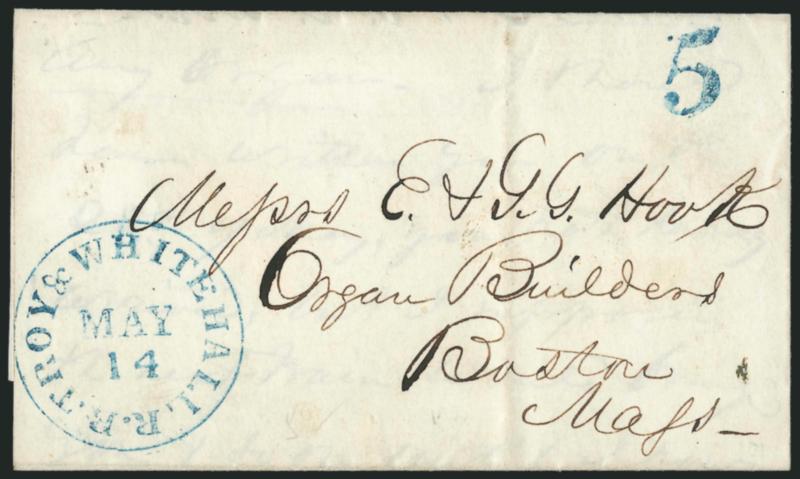 5
Messrs E. & G. G. Hook
Organ Builders
Boston
Mass
TROY & WHITEHALL R.R.
MAY
14